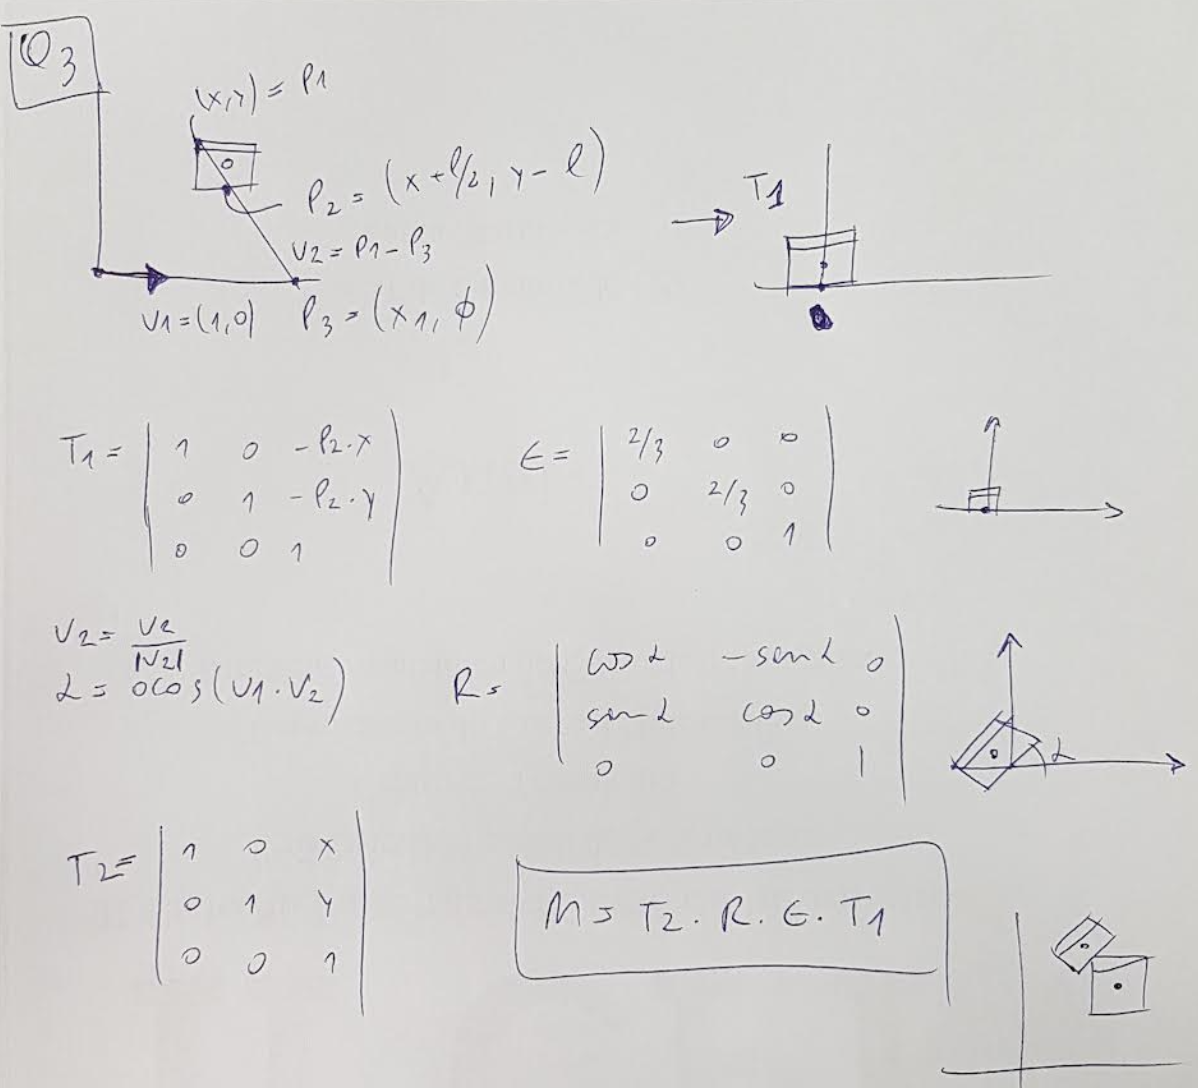 Q3
(x,y) = P1
P2 = (x + l/2, y - l)
V2 = P1 - P3
V1 = (1,0) P3 = (x1, ϕ)
→ T1
T1 = | 1 0 -P2.x |
| 0 1 -P2.y |
| 0 0 1 |
E = | 2/3 0 0 |
| 0 2/3 0 |
| 0 0 1 |
V2 = V2 / |V2|
α = acos(V1 . V2)
R = | cos α -sen α 0 |
| sen α cos α 0 |
| 0 0 1 |
α
T2 = | 1 0 x |
| 0 1 y |
| 0 0 1 |
M = T2 . R . E . T1